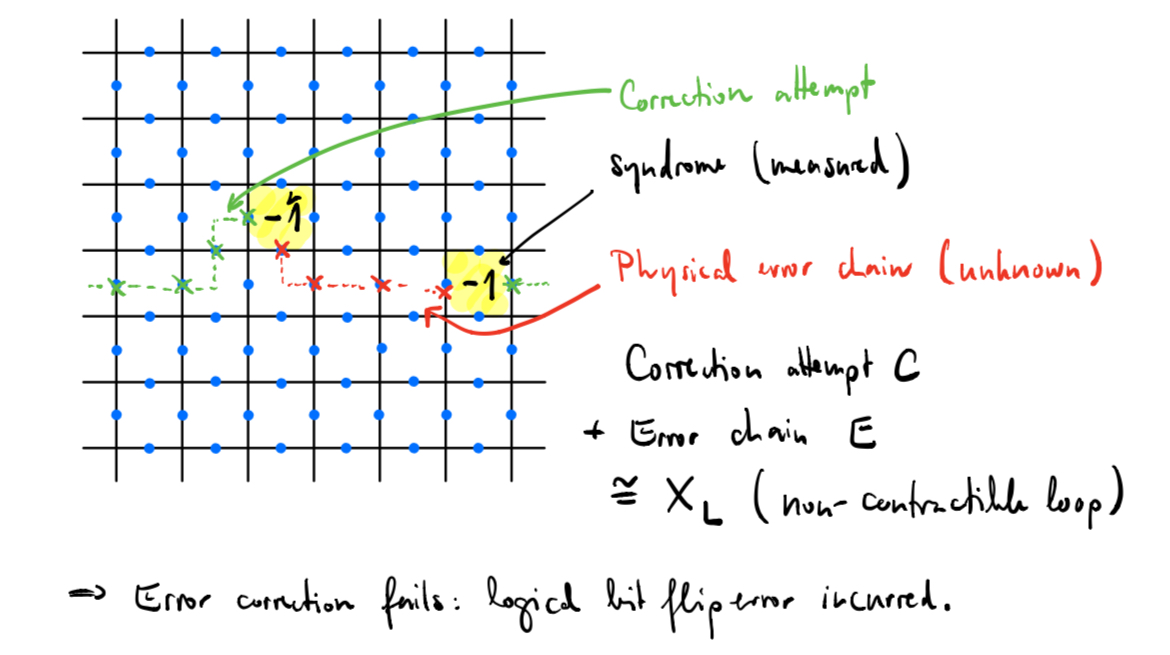 Correction attempt
syndrome (measured)
-1
-1
Physical error chain (unknown)
Correction attempt C
+ Error chain E
≅ X_L (non-contractible loop)
⇒ Error correction fails: logical bit flip error incurred.